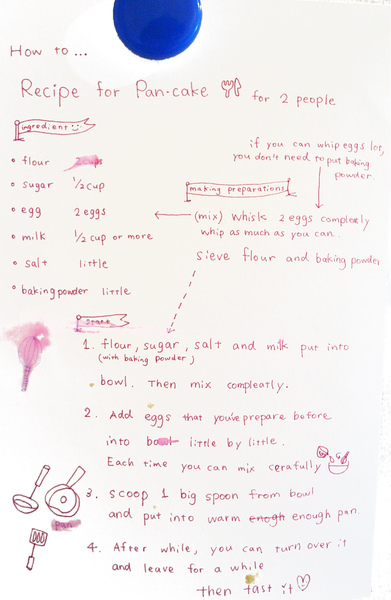 How to ...
Recipe for Pan-cake for 2 people
ingredient
if you can whip eggs lot,
you don't need to put baking
powder.
flour
sugar 1/2 cup
egg 2 eggs
milk 1/2 cup or more
salt little
baking powder little
making preparations
(mix) whisk 2 eggs completly
whip as much as you can.
sieve flour and baking powder
1. flour, sugar, salt and milk put into
(with baking powder)
bowl. Then mix compleatly.
2. Add eggs that you've prepare before
into little by little.
Each time you can mix cerafully
3. scoop 1 big spoon from bowl
and put into warm enogh enough pan.
pan
4. After while, you can turn over it
and leave for a while
then tast it